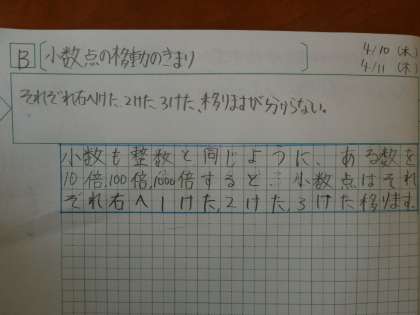 B 小数点の移動のきまり 4/10(水)
4/11(木)
それぞれ右へけた、2けた、3けた、移りますが分からない。
小数も整数と同じように、ある数を
10倍,100倍,1000倍すると… 小数点はそれ
ぞれ右へ1けた,2けた,3けた移ります。